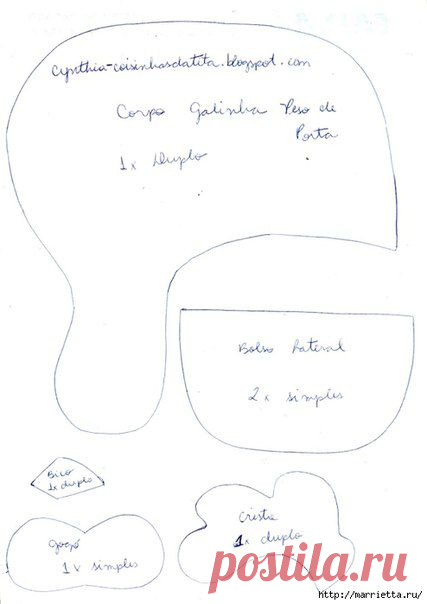 cynthia-coisinhasdatita.blogspot.com
Corpo Galinha Peso de
Porta
1x Duplo
Bolso Lateral
2x simples
Bico
1x duplo
Crista
1x duplo
papo
1x simples
postila.ru
http://marrietta.ru/